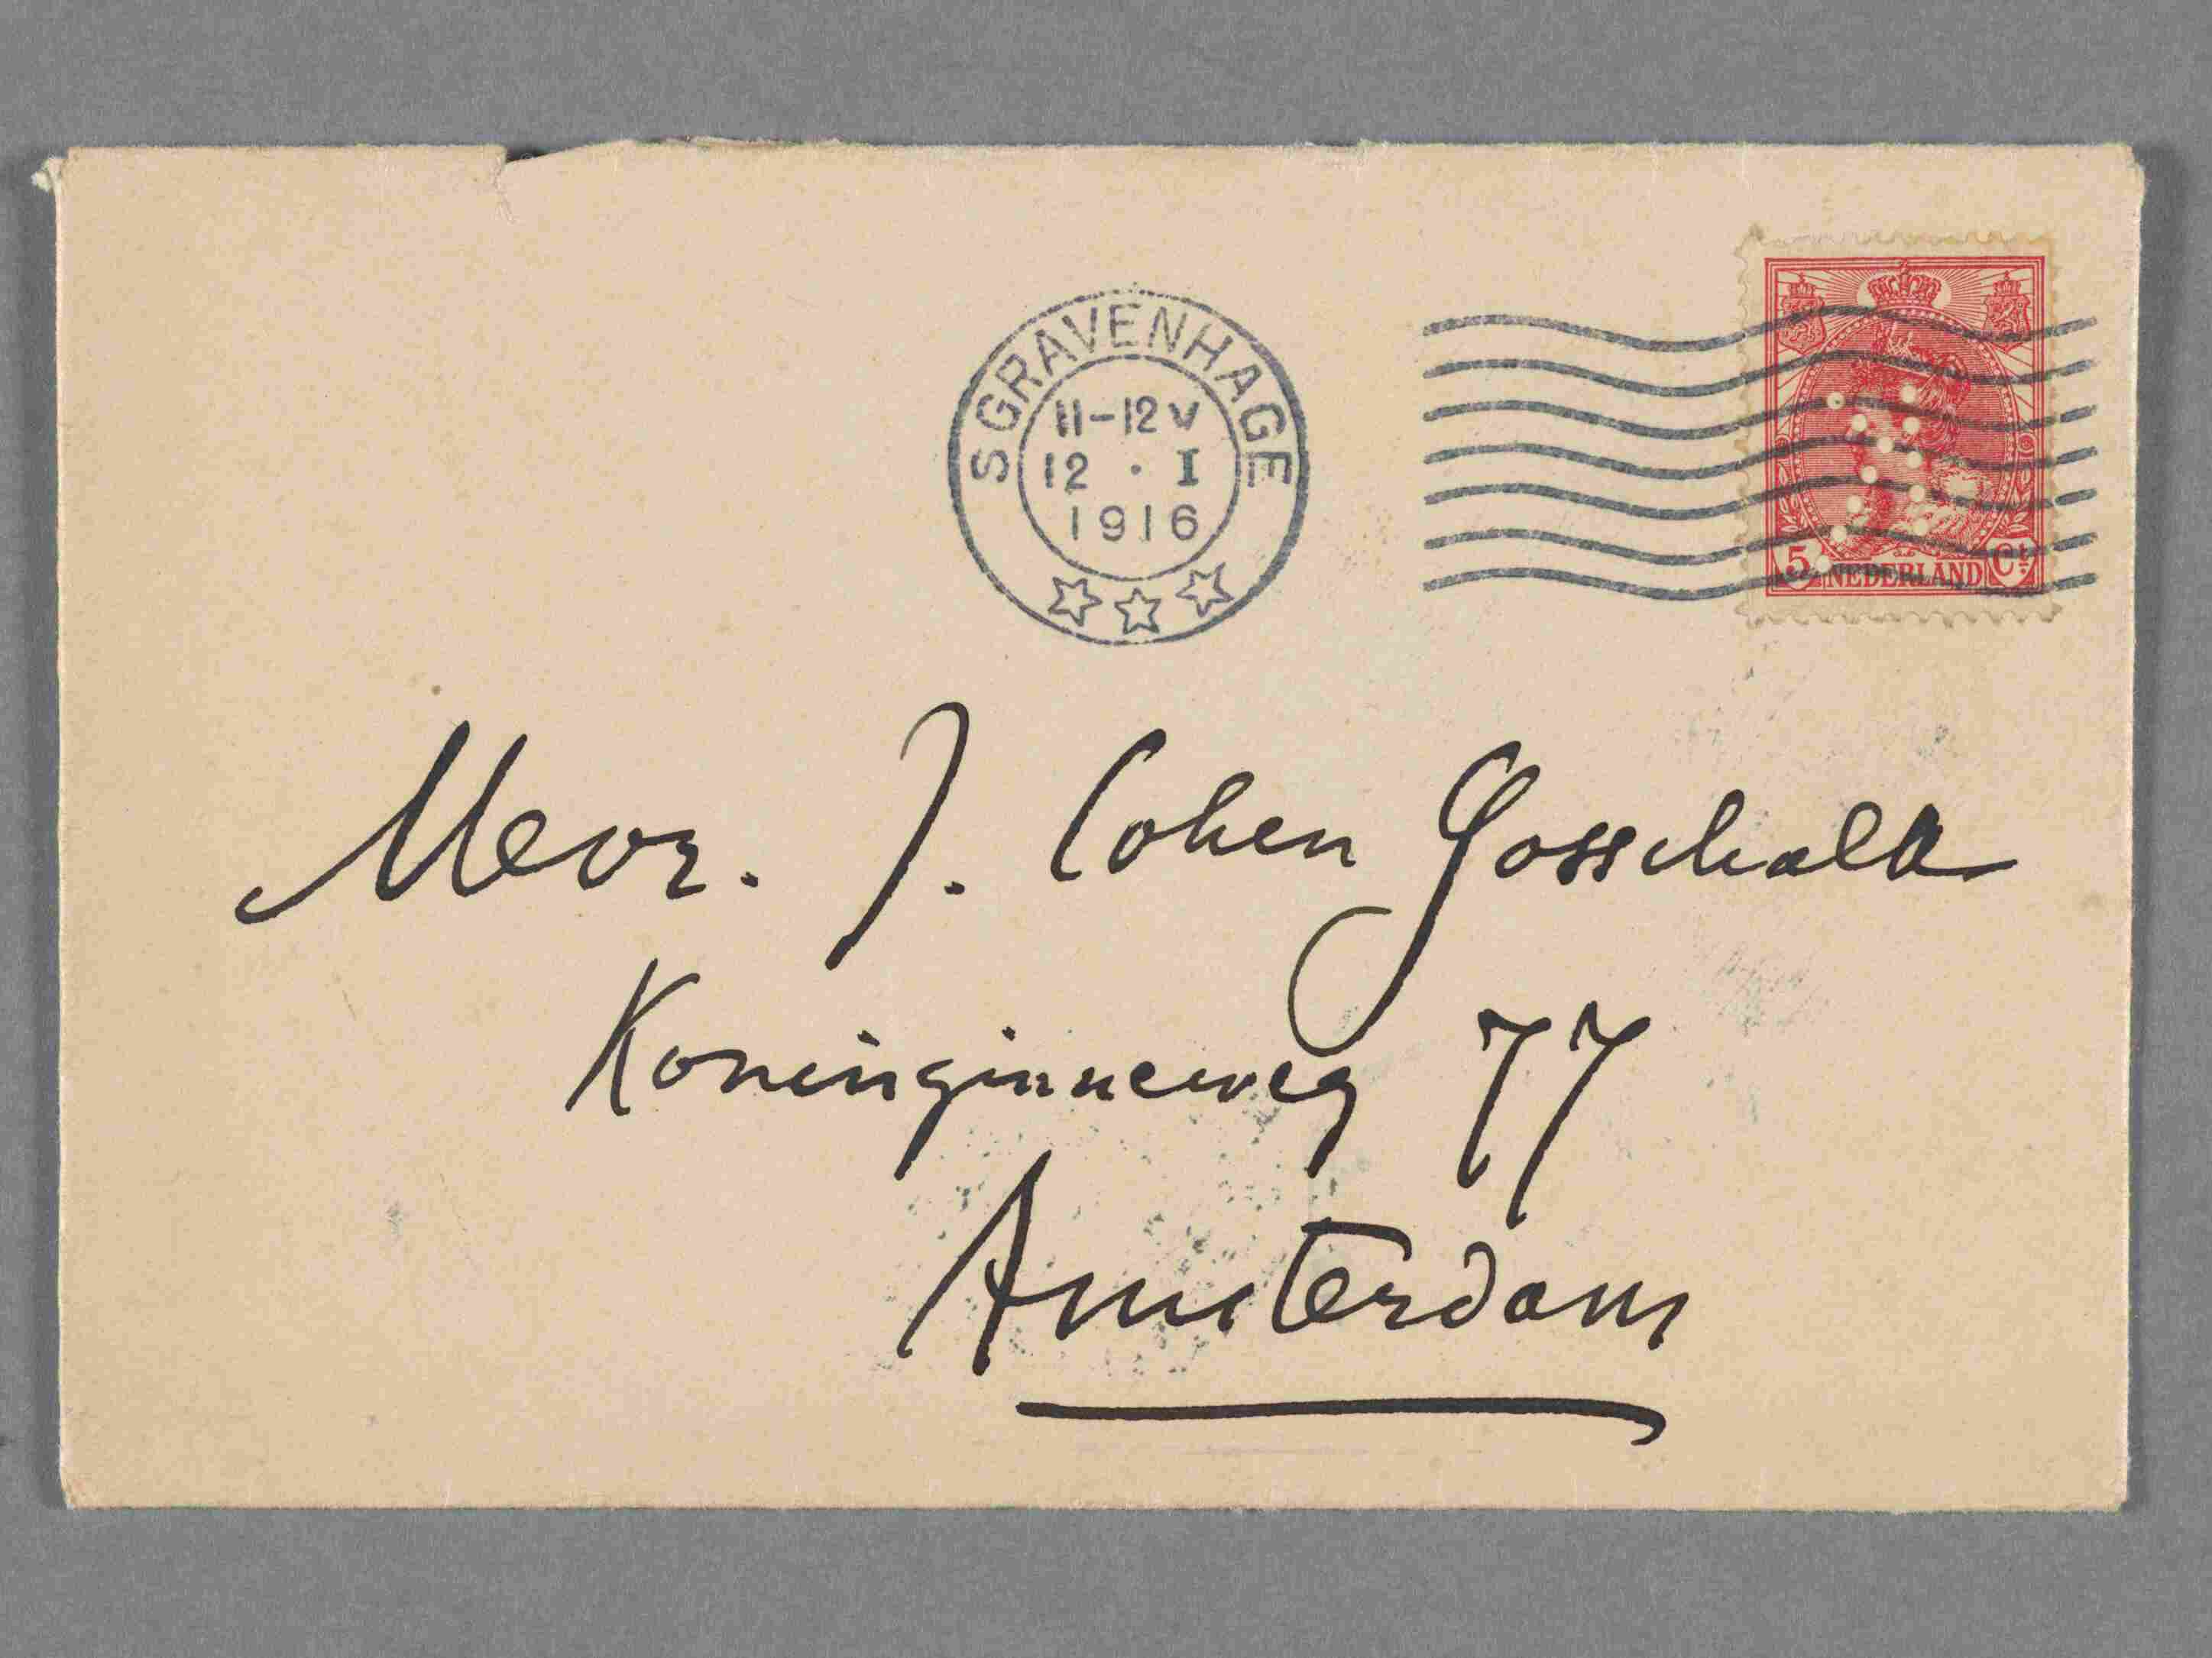 S GRAVENHAGE
11-12 V
12 · I
1916
5 NEDERLAND Ct
Mevr. J. Cohen Gosschalk
Koninginneweg 77
Amsterdam